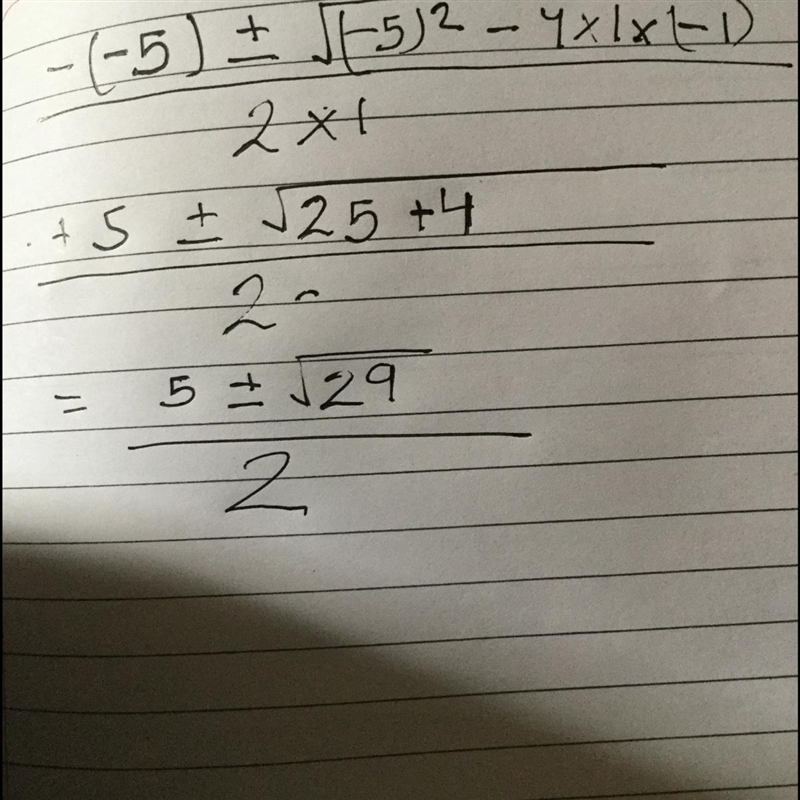 -(-5) ± √(-5)² - 4×1×(-1)
2×1
+5 ± √25+4
2
= 5 ± √29
2